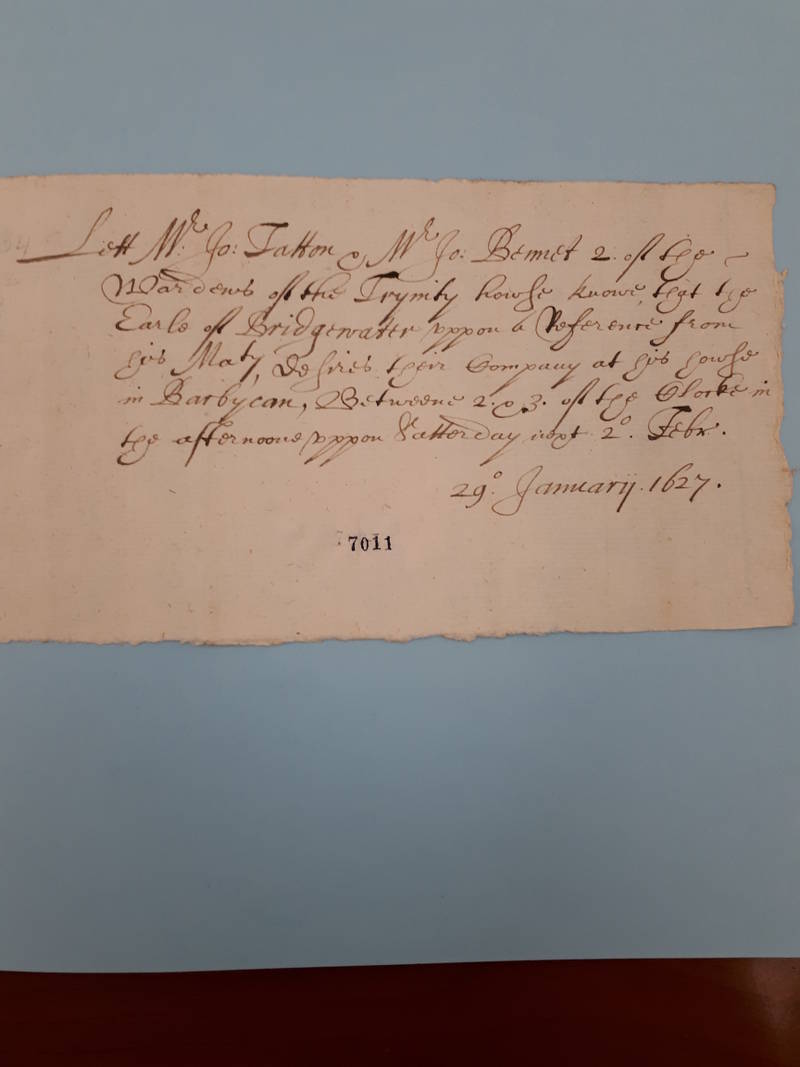 Lett Mr. Jo: Tatton & Mr Jo: Bennet 2. of the
Wardens of the Trynity howse knowe, that the
Earle of Bridgewater vppon a Reference from
his Maty, desires their Company at his howse
in Barbycan, Betweene 2. & 3. of the Clocke in
the afternoone vppon Satterday next 2º. Febr.
29º. Januarij. 1627.
7011